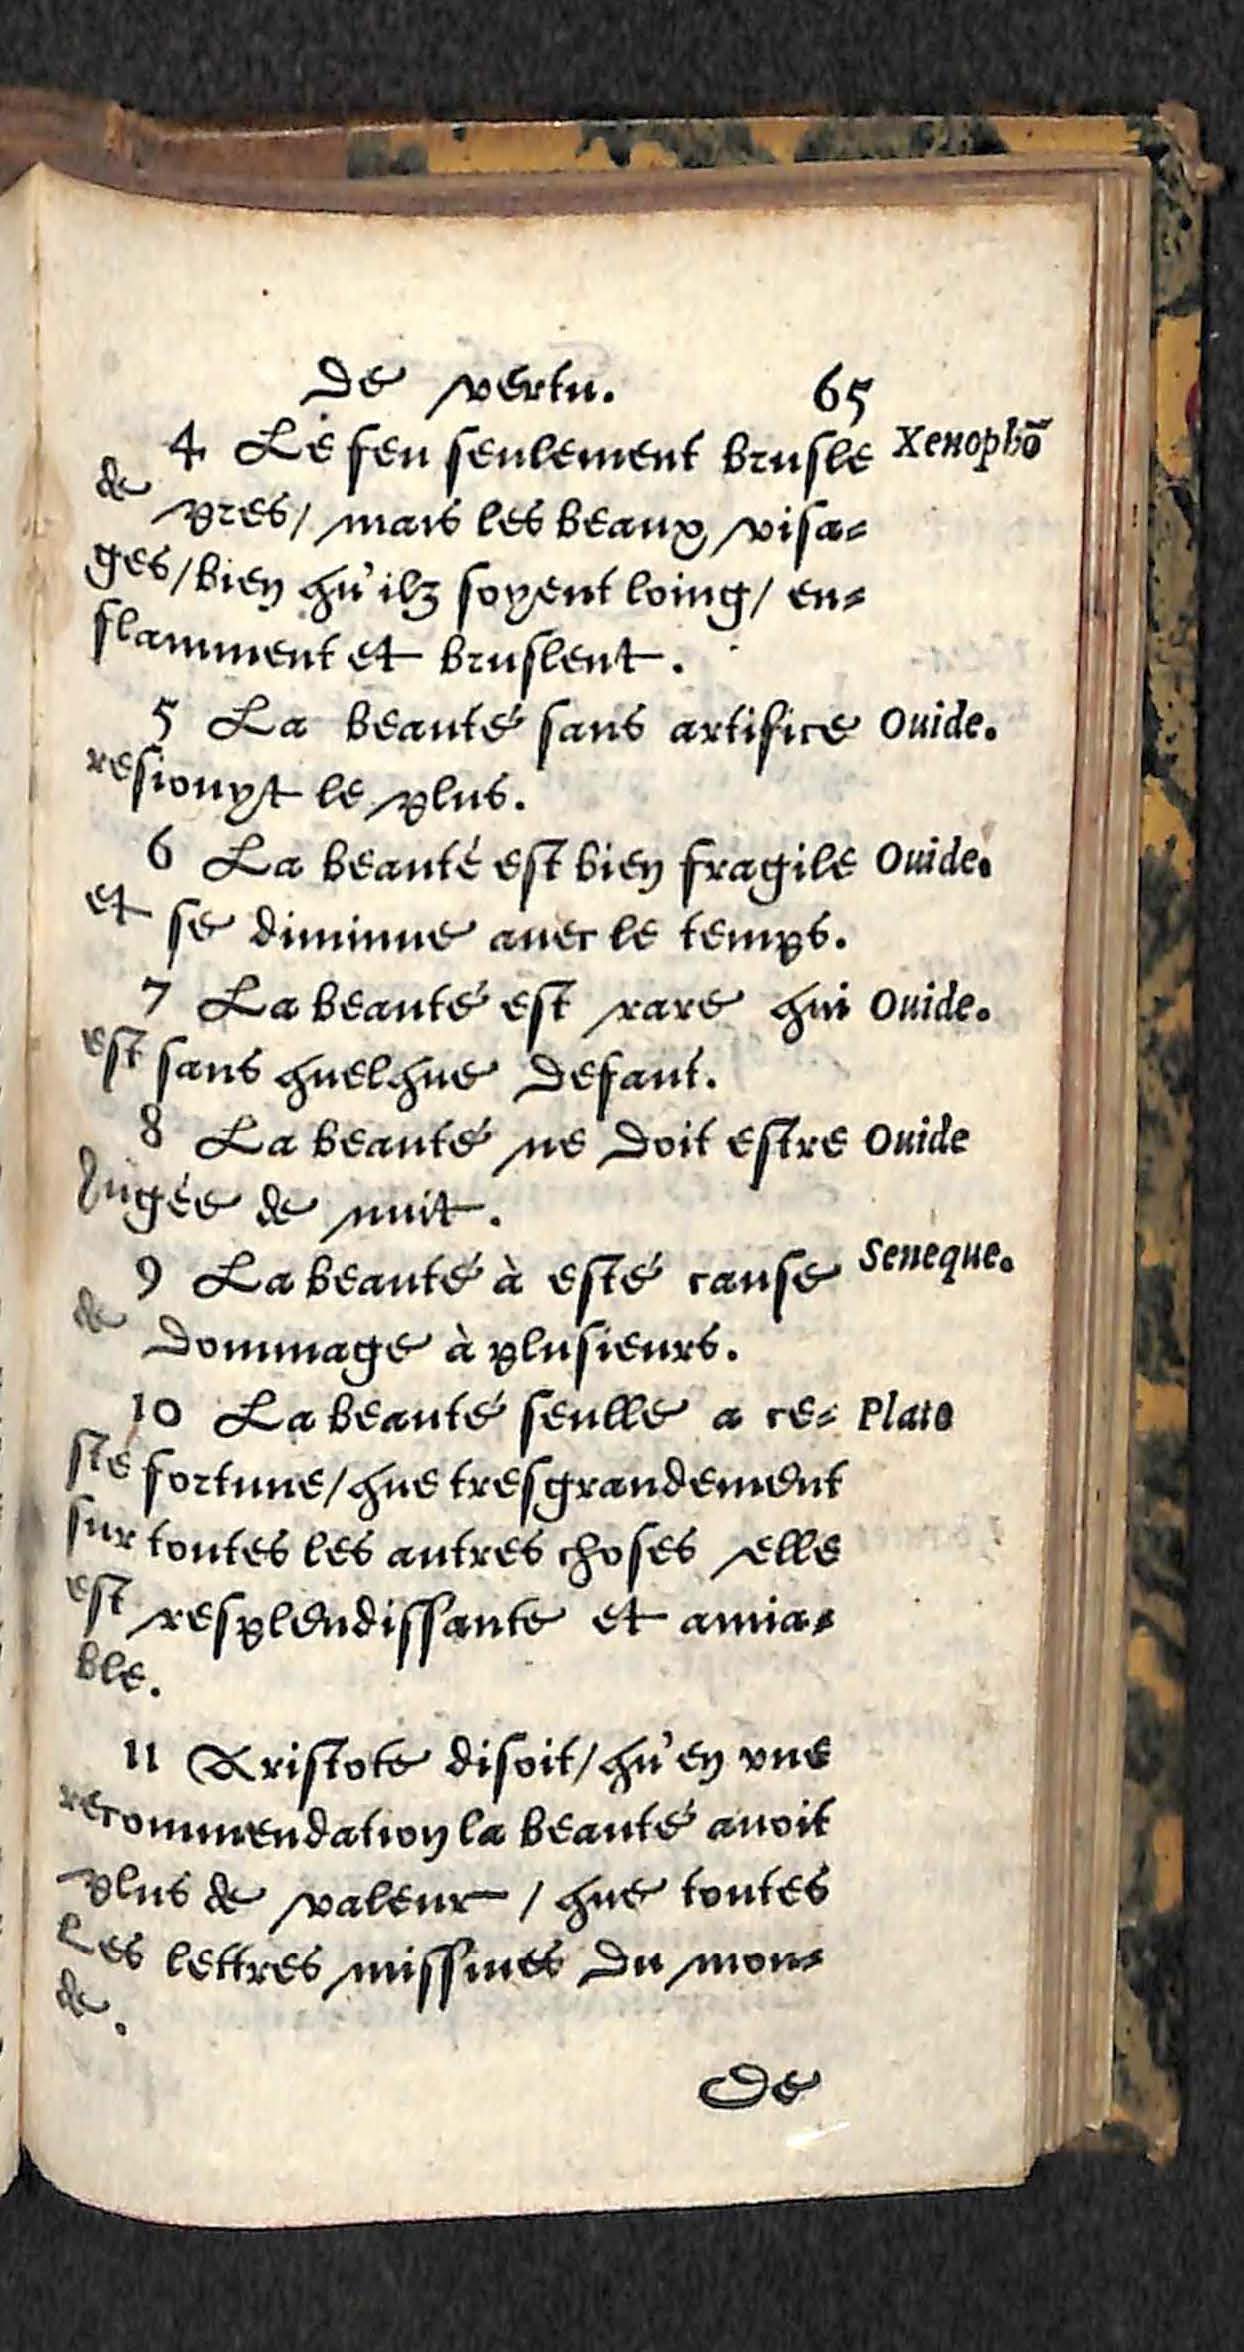 De vertu. 65
4 Le feu seulement brusle Xenophõ
de pres/ mais les beaux visa-
ges/ bien qu'ilz soyent loing/ en-
flamment et bruslent.
5 La beauté sans artifice Ouide.
resiouyt le plus.
6 La beauté est bien fragile Ouide.
et se diminue auec le temps.
7 La beauté est rare qui Ouide.
est sans quelque defaut.
8 La beauté ne doit estre Ouide
Iugée de nuit.
9 La beauté à esté cause Seneque.
de dommage à plusieurs.
10 La beauté seulle a ce- Plato
ste fortune/ que tresgrandement
sur toutes les autres choses elle
est resplendissante et amia-
ble.
11 Aristote disoit/ qu'en vne
recommendation la beauté auoit
plus de valeur/ que toutes
Les lettres missiues du mon-
de.
De